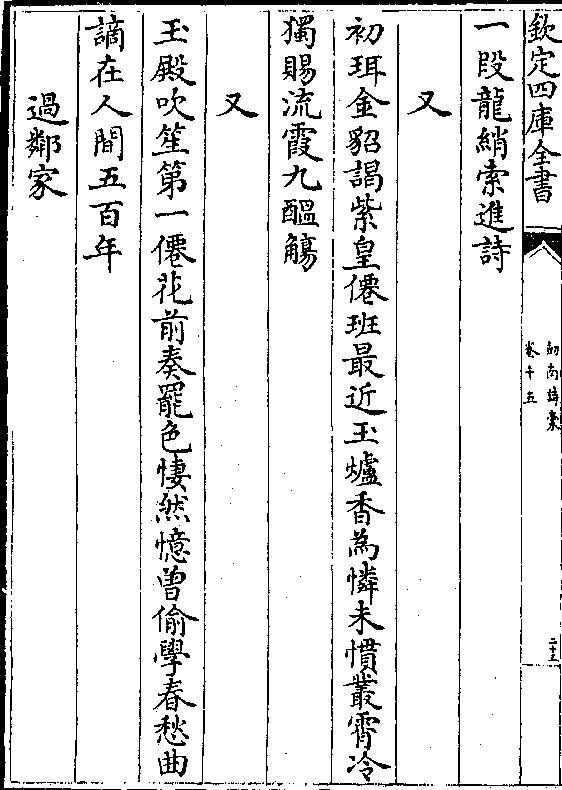 欽定四庫全書
劍南詩稾
卷十五
二十三
一段龍綃索進詩
又
初珥金貂謁紫皇僊班最近玉爐香為憐未慣叢霄冷
獨賜流霞九醖觴
又
玉殿吹笙第一僊花前奏罷色悽然憶曽偷學春愁曲
謫在人間五百年
過鄰家